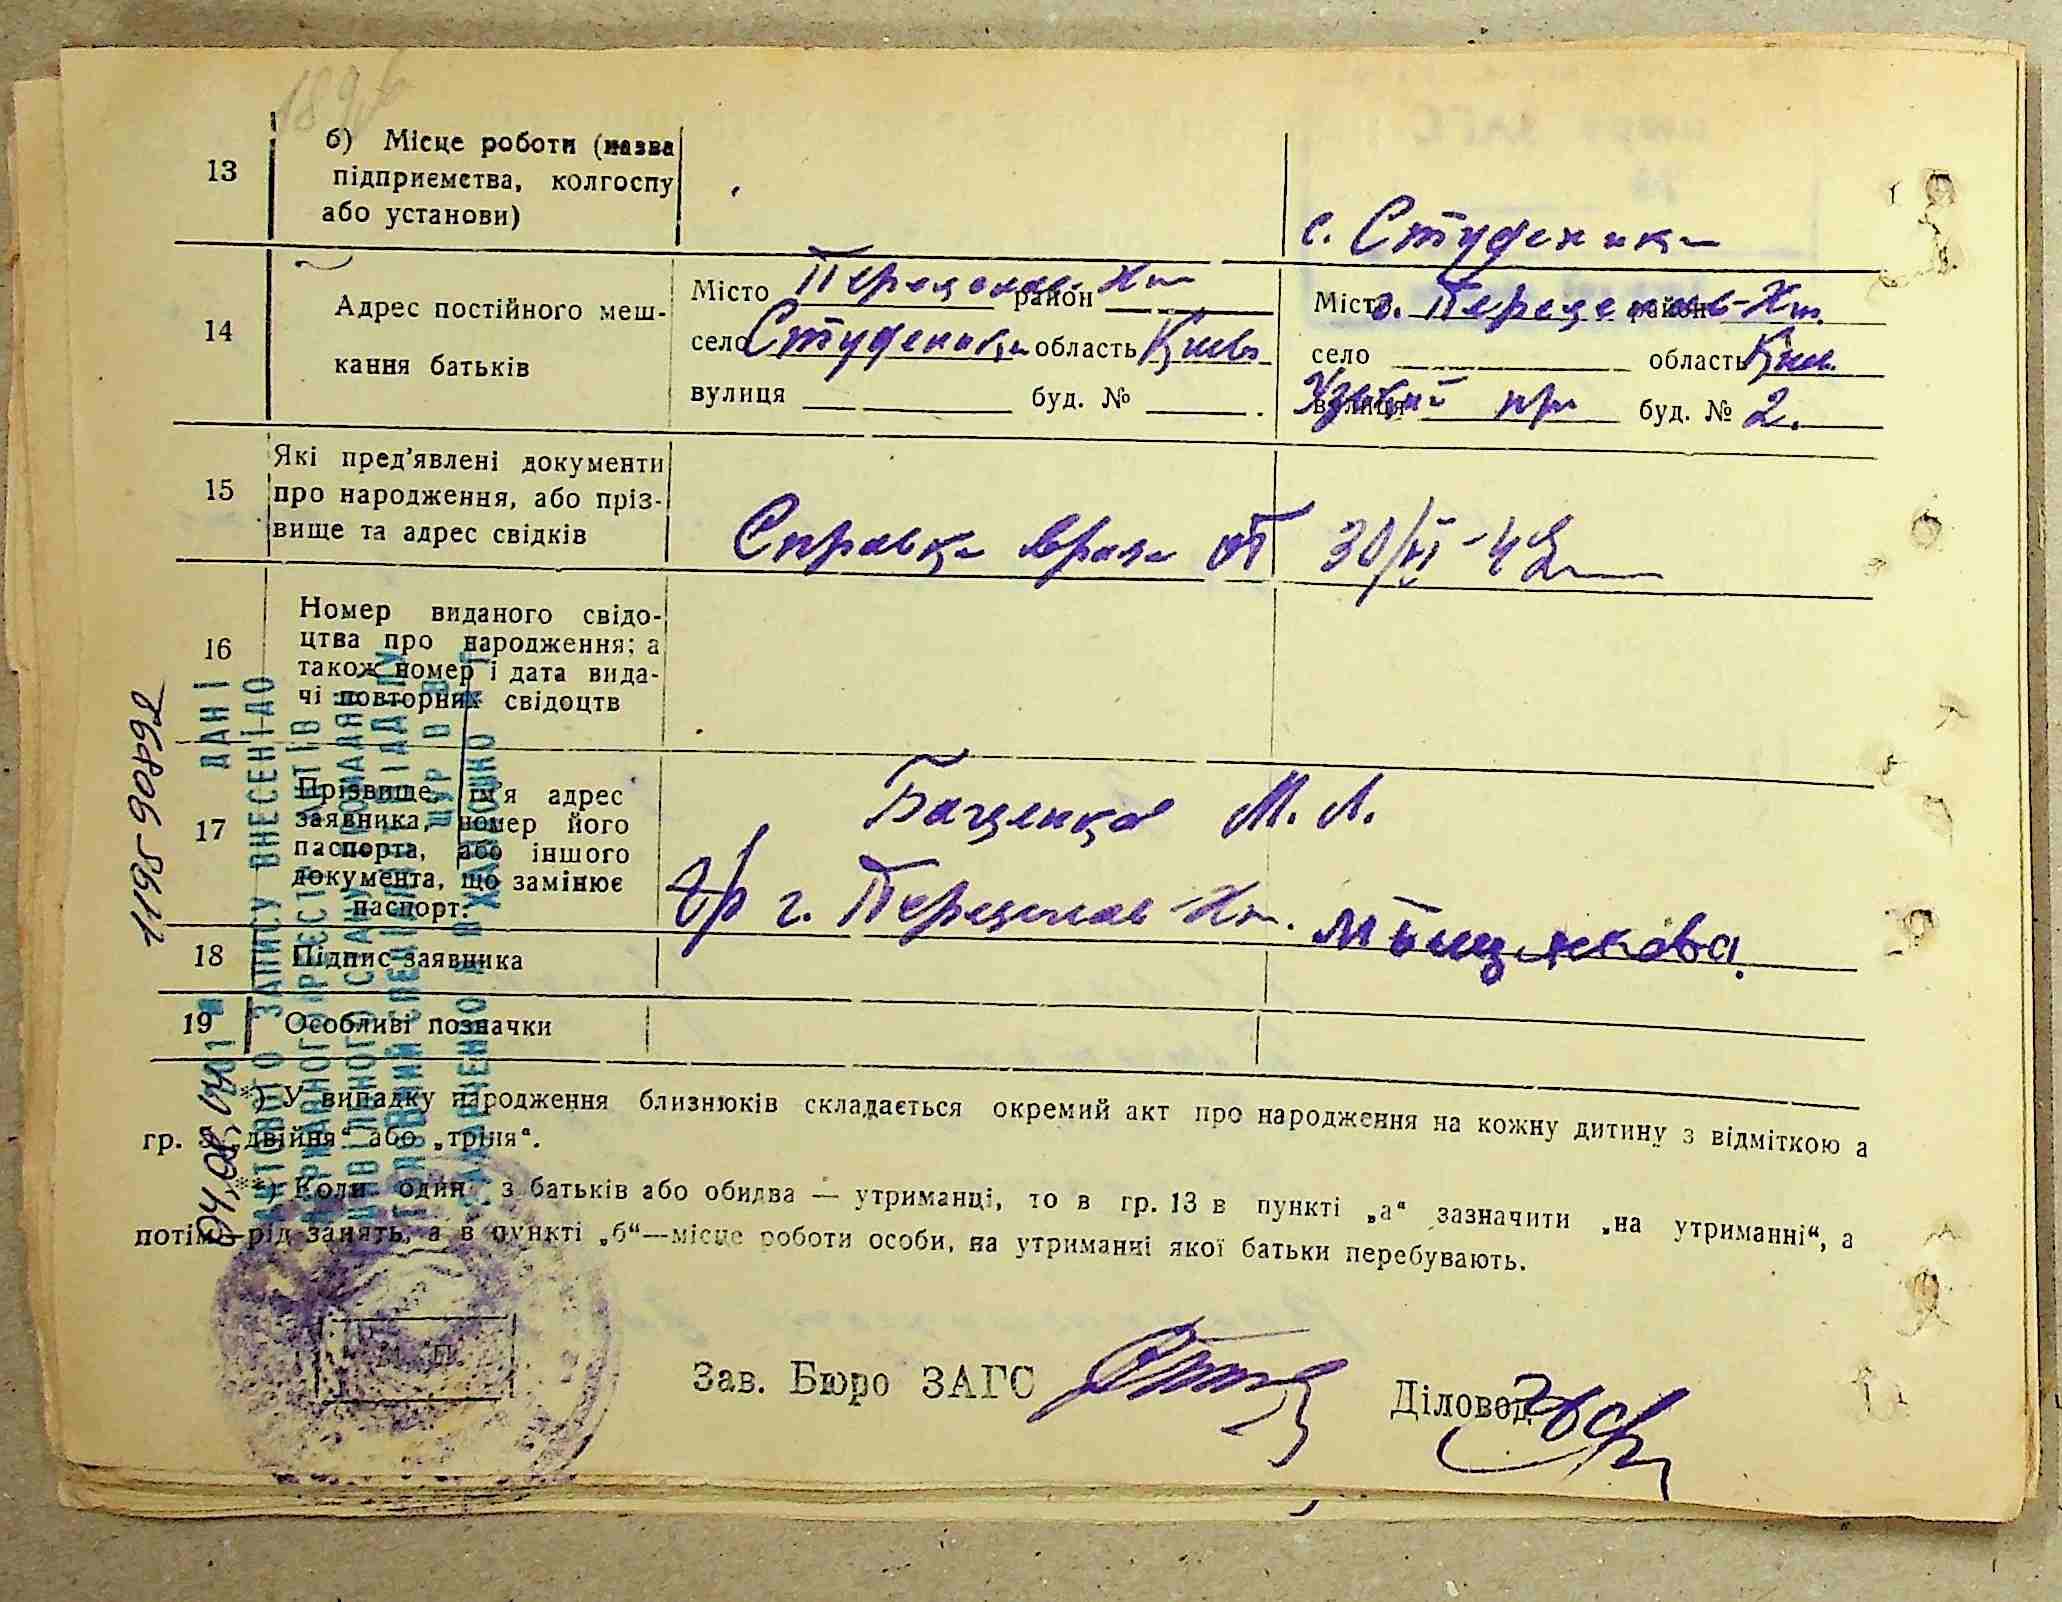 13
б) Місце роботи (назва
підприємства, колгоспу
або установи)
с. Студеники
14
Адрес постійного меш-
кання батьків
Місто Переяслав-Хм район
село Студеники область Київ
вулиця буд. №
Місто г. Переяслав-Хм. район
село область Київ.
вулиця буд. № 2.
15
Які пред'явлені документи
про народження, або пріз-
вище та адрес свідків
Справка врача от 30/VI-42
16
Номер виданого свідо-
цтва про народження; а
також номер і дата вида-
чі повторних свідоцтв
17
Прізвище, ім'я адрес
заявника, номер його
паспорта, або іншого
документа, що замінює
паспорт.
М. Л.
г. Переяслав-Хм.
18
Підпис заявника
19
Особливі позначки
*) У випадку народження близнюків складається окремий акт про народження на кожну дитину з відміткою а
гр. „двійня“ або „трійня“.
**) Коли один з батьків або обидва — утриманці, то в гр. 13 в пункті „а“ зазначити „на утриманні“, а
потім—рід занять, а в пункті „б“—місце роботи особи, на утриманні якої батьки перебувають.
М. П.
Зав. Бюро ЗАГС
Діловод
ДАНІ
АКТОВОГО ЗАПИСУ ВНЕСЕНІ ДО
ДЕРЖАВНОГО РЕЄСТРУ АКТІВ
ЦИВІЛЬНОГО СТАНУ ГРОМАДЯН